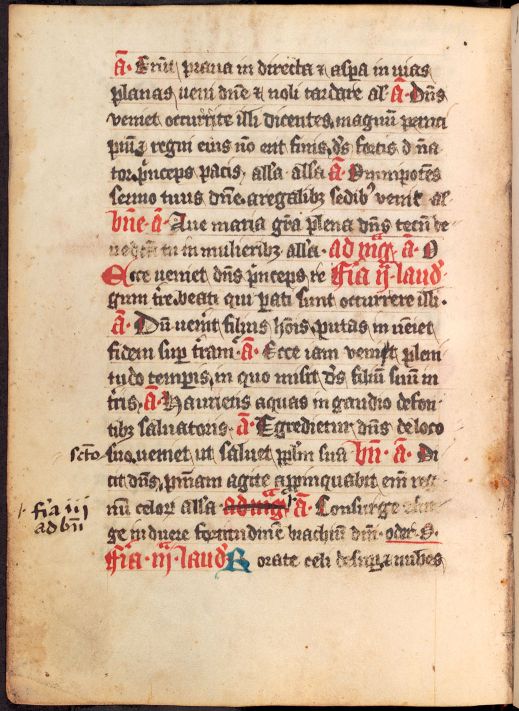 ā. Erūt praua in directa ⁊ aspa in uias
planas ueni dn̄e ⁊ noli tardare al̄a ā. Dn̄s
veniet occurrite illi dicentes, magnū p̄nci
piū ⁊ regni eius nō erit finis, d̄s fortis d n̄a
tor, p̄nceps pacis, all̄a all̄a ā Omnipotēs
sermo tuus dn̄e aregalibꝫ sedibꝰ veniet al̄
bn̄e ā. Aue maria gr̄a plena dn̄s tecū be
nedc̄ta tu in mulieribꝫ all̄a. ad mag ā. O
Ecce veniet dn̄s p̄nceps re fīa ij laud̄
gum tr̄e, beati qui p̄ati sunt occurrere illi.
ā. Dū uen̄it filius hōis, putas in ueiet
fidem sup̄ t̄ram ā. Ecce iam veniet pleni
tudo temp̄is, in quo misit d̄s filiū suū in
t̄ris, ā. Haurietis aquas in gaudio de fon
tibꝫ saluatoris ā. Egredietur dn̄s de loco
sc̄to suo, ueniet ut saluet pp̄lm̄ suū bn̄. ā. Di
cit dn̄s, pn̄iam agite appinquabit eīn reg
nū celoꝝ all̄a ad mag ā. Consurge
fīa iii
ad bn̄
ge induere fortitudinē brachiū dn̄i.
fīa iij laud̄ Rorate celi desup̄ ⁊ nubes